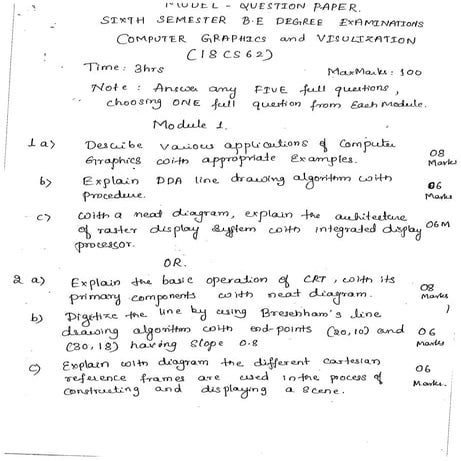 MODEL - QUESTION PAPER.
SIXTH SEMESTER B.E DEGREE EXAMINATIONS
COMPUTER GRAPHICS and VISULIZATION
(18CS62)
Time: 3hrs MaxMarks: 100
Note: Answer any FIVE full questions,
choosing ONE full question from Each Module.
Module 1.
1 a) Describe Various applications of Computer
Graphics with appropriate Examples. 08 Marks
b) Explain DDA line drawing algorithm with 06
procedure. Marks
c) With a neat diagram, explain the architecture
of raster display system with integrated display 06M
processor.
OR.
2 a) Explain the basic operation of CRT, with its 08
primary components with neat diagram. Marks
b) Digitize the line by using Bresenham's line
drawing algorithm with end-points (20,10) and 06
(30,18) having slope 0.8 Marks
c) Explain with diagram the different cartesian 06
reference frames are used in the process of Marks.
constructing and displaying a scene.